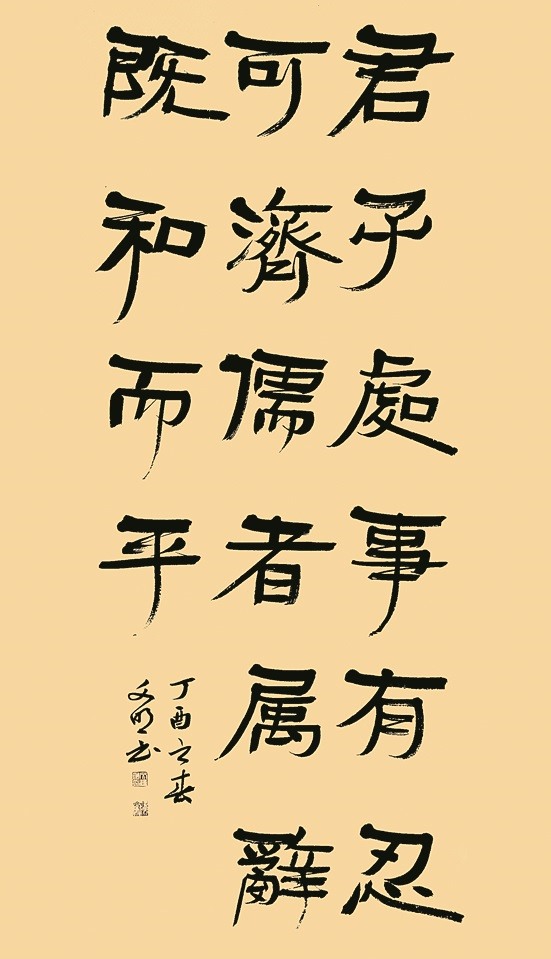 君子處事有忍
可濟儒者属辭
既和而平
丁酉之春
文明书